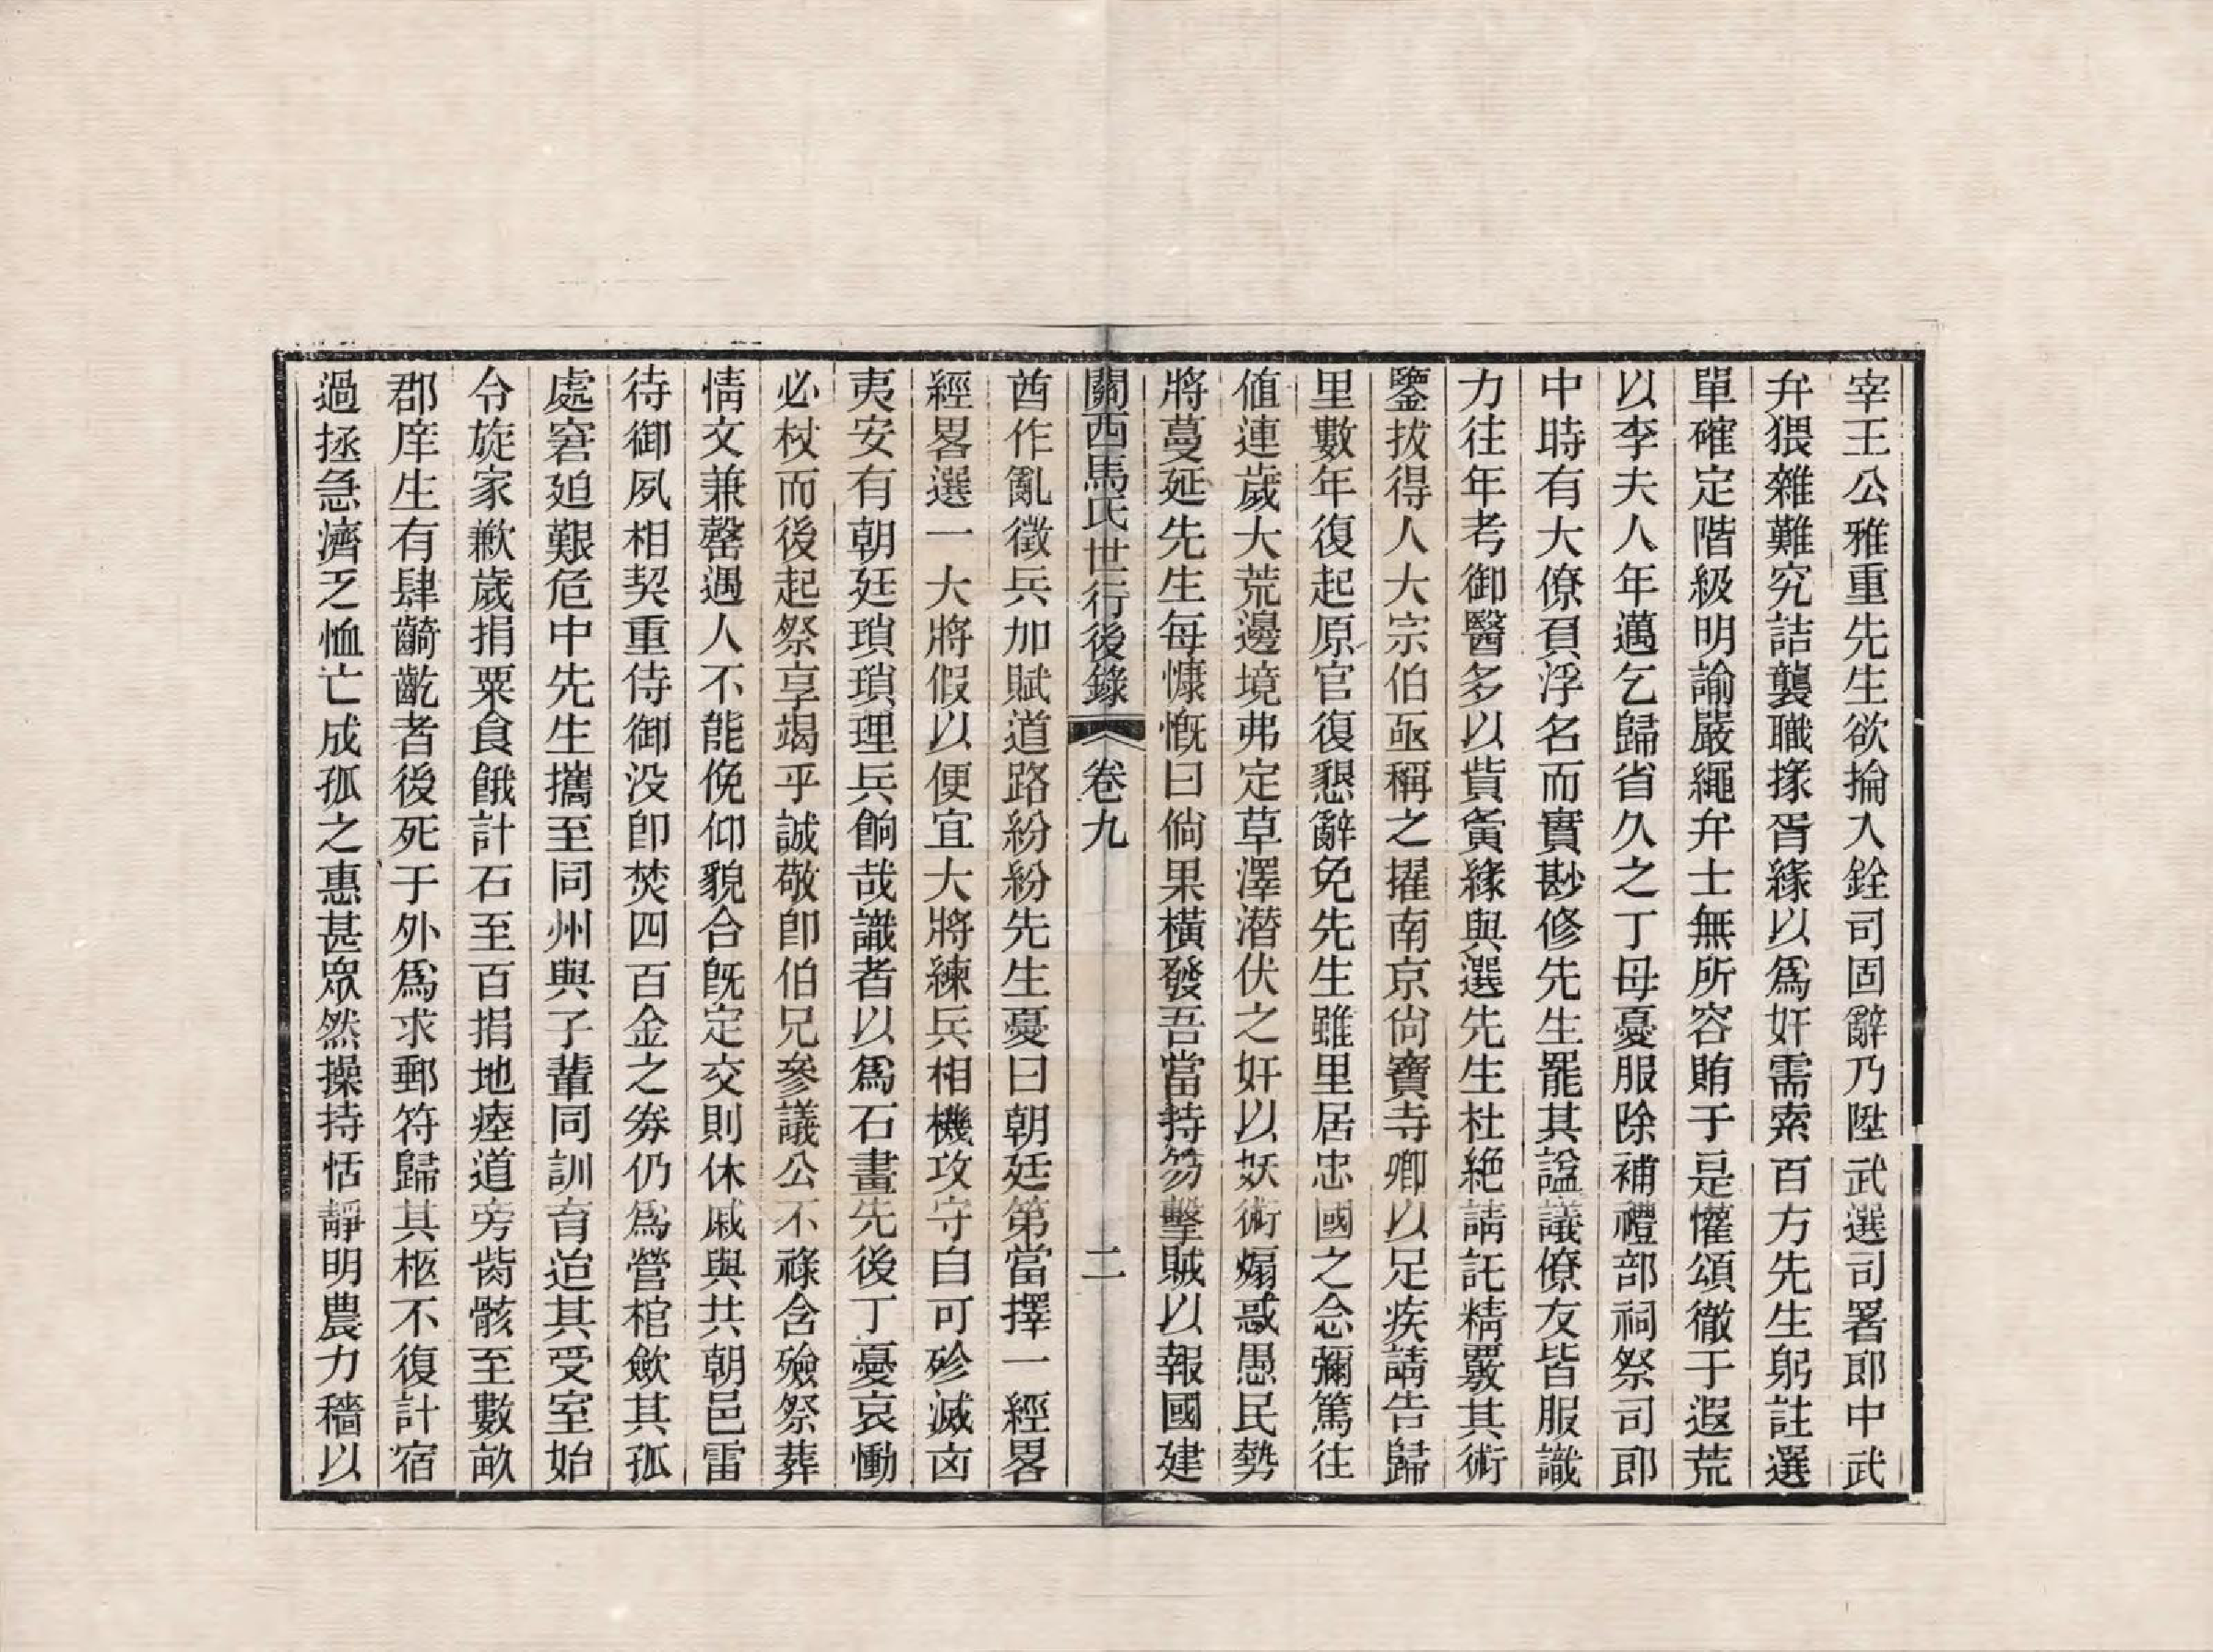 宰王公雅重先生欲掄入銓司固辭乃陞武選司署郎中武
弁猥雜難究詰襲職掾胥緣以爲奸需索百方先生躬註選
單確定階級明諭嚴繩弁士無所容賄于是懽頌徹于遐荒
以李夫人年邁乞歸省久之丁母憂服除補禮部祠祭司郎
中時有大僚負浮名而實尠修先生罷其諡議僚友皆服識
力往年考御醫多以貲夤緣與選先生杜絶請託精覈其術
鑒拔得人大宗伯亟稱之擢南京尙寶寺卿以足疾請告歸
里數年復起原官復懇辭免先生雖里居忠國之念彌篤往
値連歲大荒邊境弗定草澤潛伏之奸以妖術煽惑愚民勢
將蔓延先生每慷慨曰倘果橫發吾當持笏擊賊以報國建
關西馬氏世行後錄 卷九 二
酋作亂徵兵加賦道路紛紛先生憂曰朝廷第當擇一經畧
經畧選一大將假以便宜大將練兵相機攻守自可殄滅卤
夷安有朝廷瑣瑣理兵餉哉識者以爲石畫先後丁憂哀慟
必杖而後起祭享竭乎誠敬卽伯兄參議公不祿含殮祭葬
情文兼罄遇人不能俛仰貌合旣定交則休戚與共朝邑雷
待御夙相契重侍御没卽焚四百金之劵仍爲營棺歛其孤
處窘廹艱危中先生攜至同州與子輩同訓育迨其受室始
令旋家歉歲捐粟食餓計石至百捐地瘞道旁胔骸至數畝
郡庠生有肆齮齕者後死于外爲求郵符歸其柩不復計宿
過拯急濟乏恤亡成孤之惠甚眾然操持恬靜明農力穡以